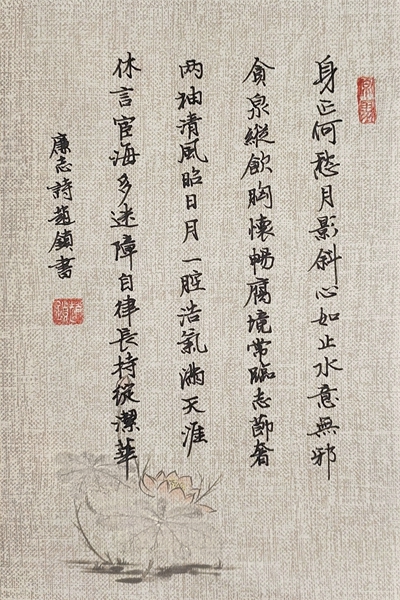 身正何愁月影斜心如止水意無邪
貪泉縱飲胸懷暢腐境常臨志節奢
两袖清風昭日月一腔浩氣滿天涯
休言宦海多迷障自律長持綻潔華
廉志詩趙鎖書